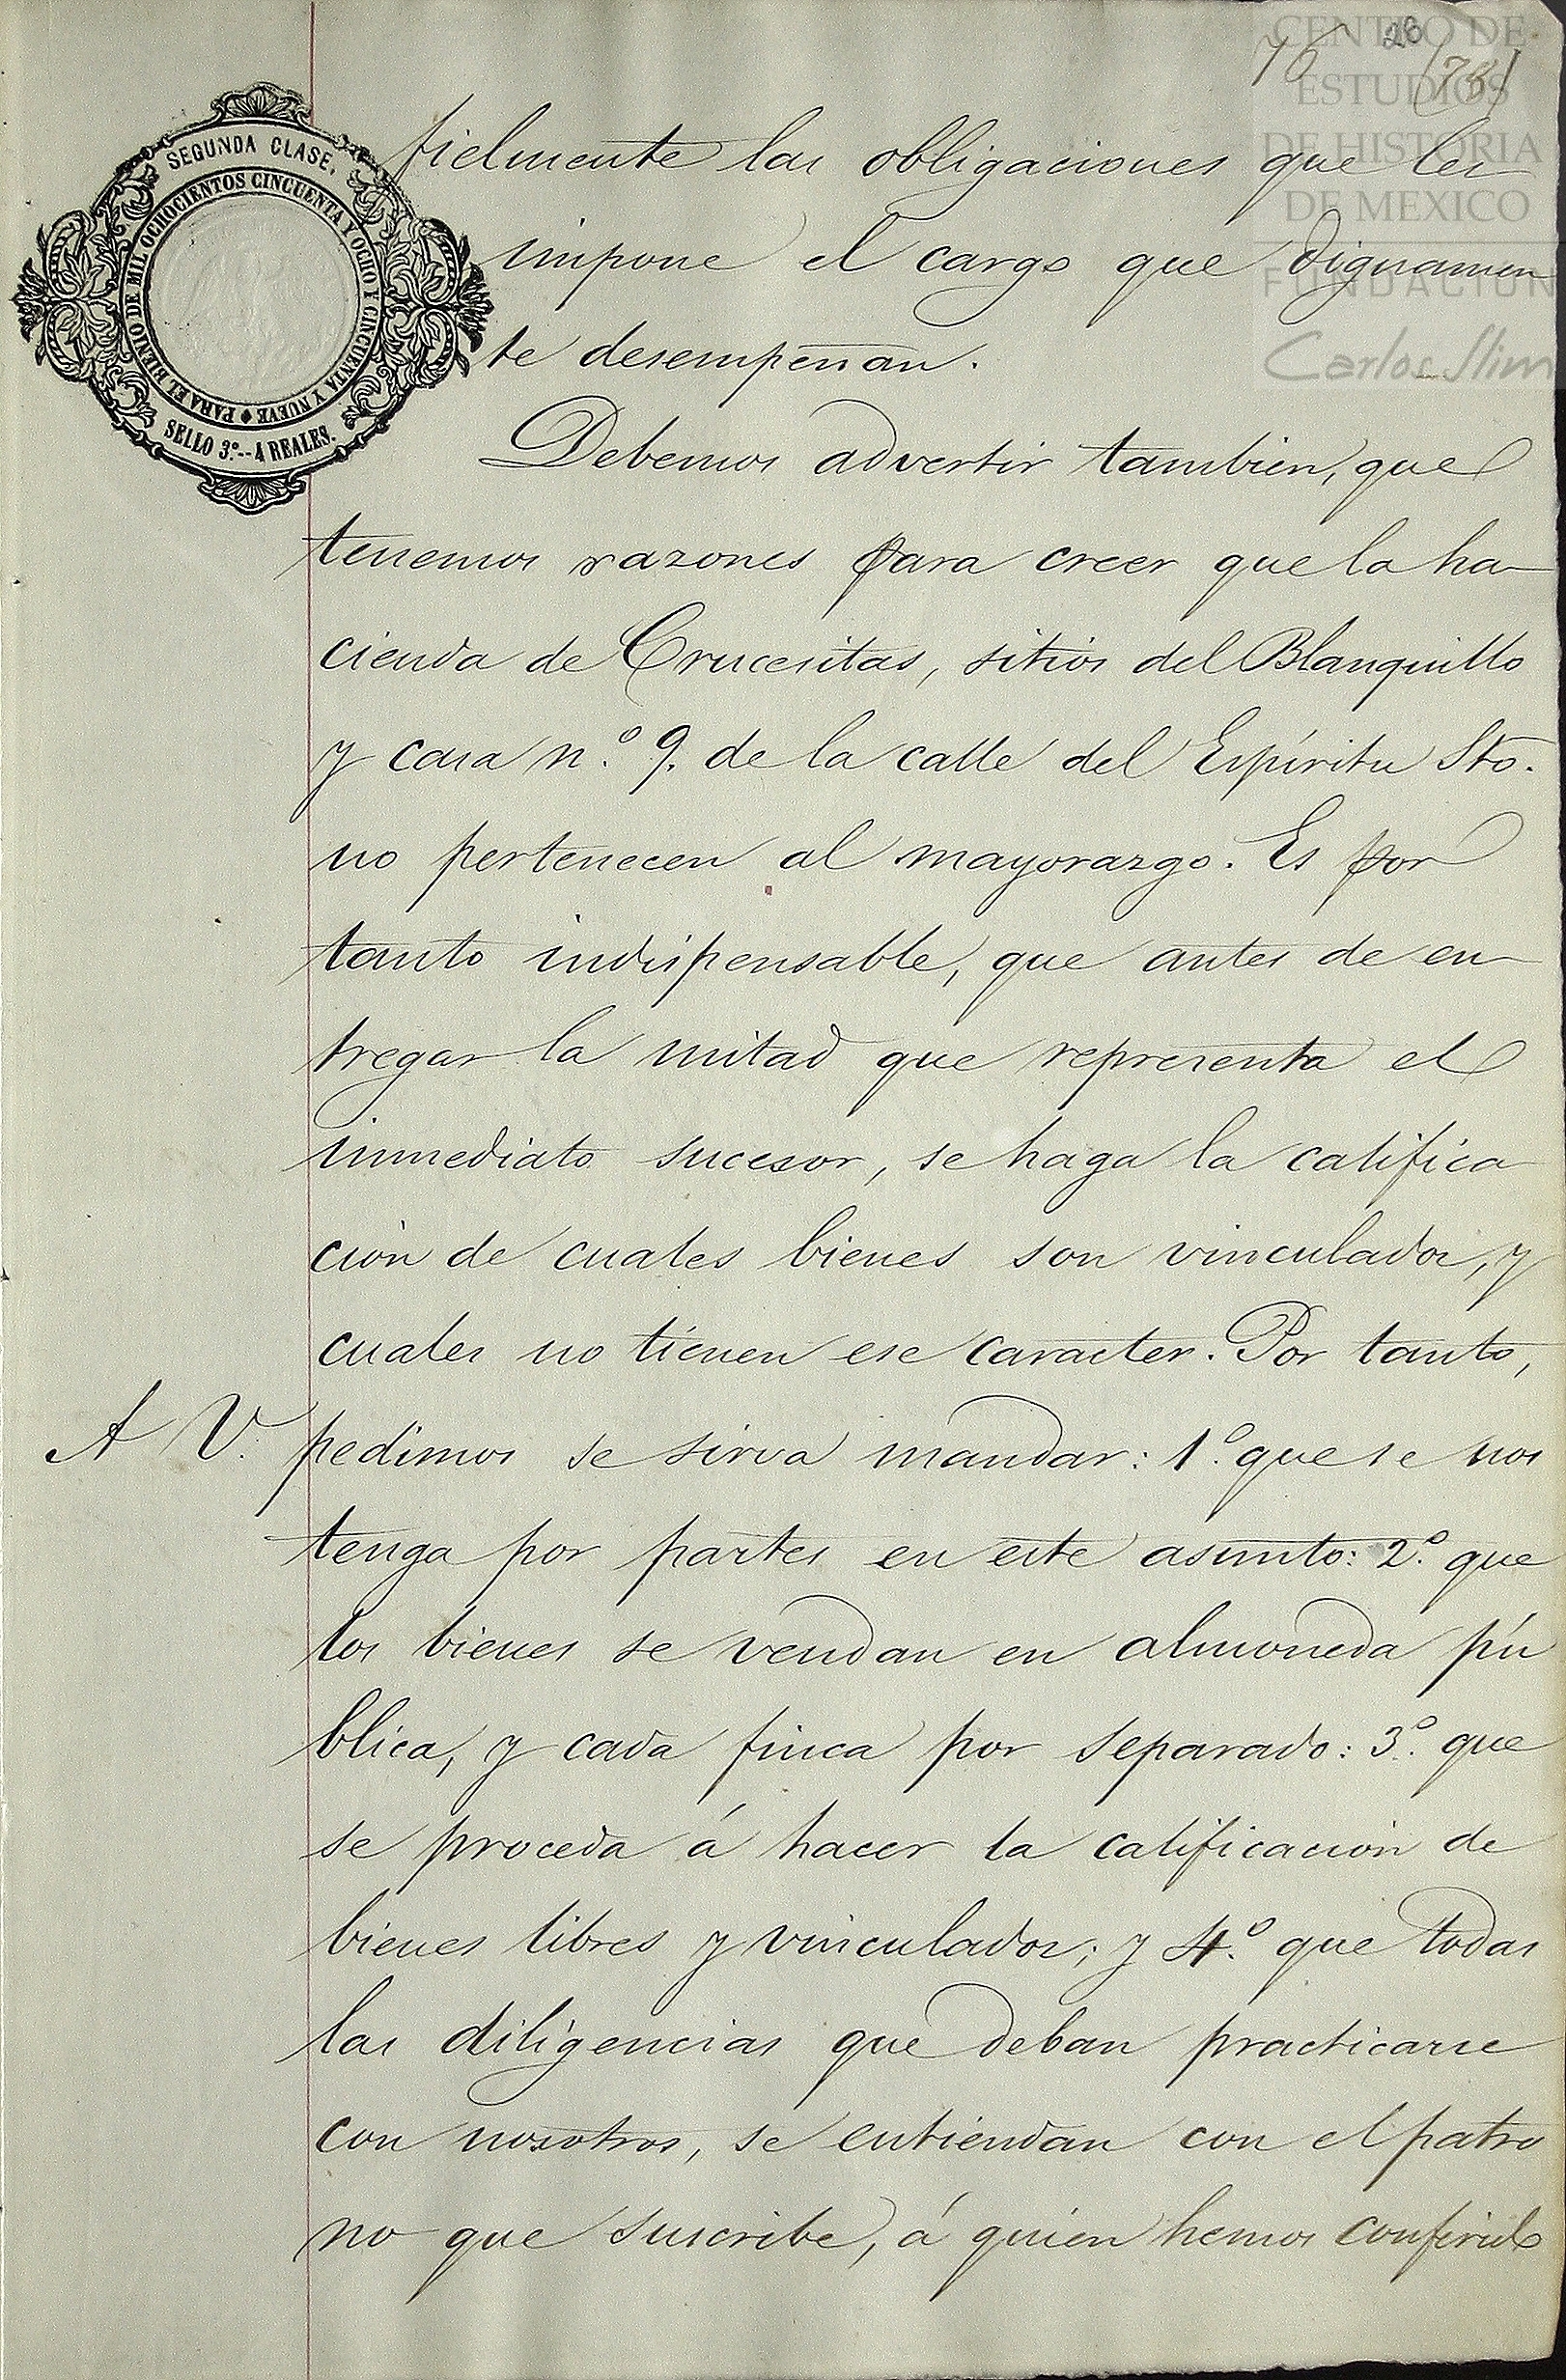 76 28 (78)
CENTRO DE
ESTUDIOS
DE HISTORIA
DE MEXICO
FUNDACION
Carlos Slim
SEGUNDA CLASE.
PARA EL BIENIO DE MIL OCHOCIENTOS CINCUENTA Y OCHO Y CINCUENTA Y NUEVE
SELLO 3º.--4 REALES.
fielmente las obligaciones que les
impone el cargo que dignamen
te desempeñan.
Debemos advertir tambien, que
tenemos razones para creer que la ha-
cienda de Crucesitas, sitios del Blanquillo
y casa n.º 9. de la calle del Espíritu Sto.
no pertenecen al mayorazgo. Es por
tanto indispensable, que antes de en-
tregar la mitad que representa el
inmediato sucesor, se haga la califica
ción de cuales bienes son vinculados, y
cuales no tienen ese caracter. Por tanto,
A V. pedimos se sirva mandar: 1.º que se nos
tenga por partes en este asunto: 2.º que
los bienes se vendan en almoneda pú
blica, y cada finca por separado: 3.º que
se proceda á hacer la calificación de
bienes libres y vinculados; y 4.º que todas
las diligencias que deban practicarse
con nosotros, se entiendan con el patro
no que suscribe, á quien hemos conferido